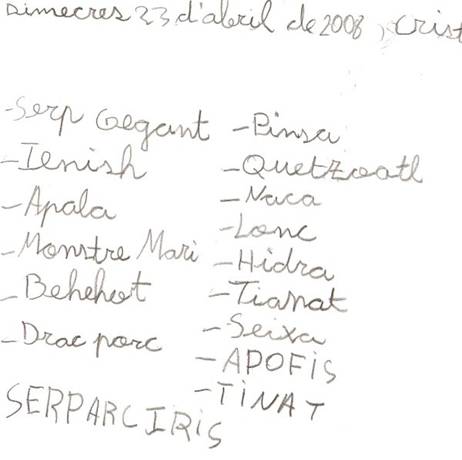 Dimecres 23 d'abril de 2008, Crist
-Serp Gegant
-Ienish
-Apala
-Monstre Mari
-Behehot
-Drac porc
SERPARCIRIS
-Pinsa
-Quetzoatl
-Naca
-Lonc
-Hidra
-Tianat
-Seixa
-APOFiS
-TiNAT